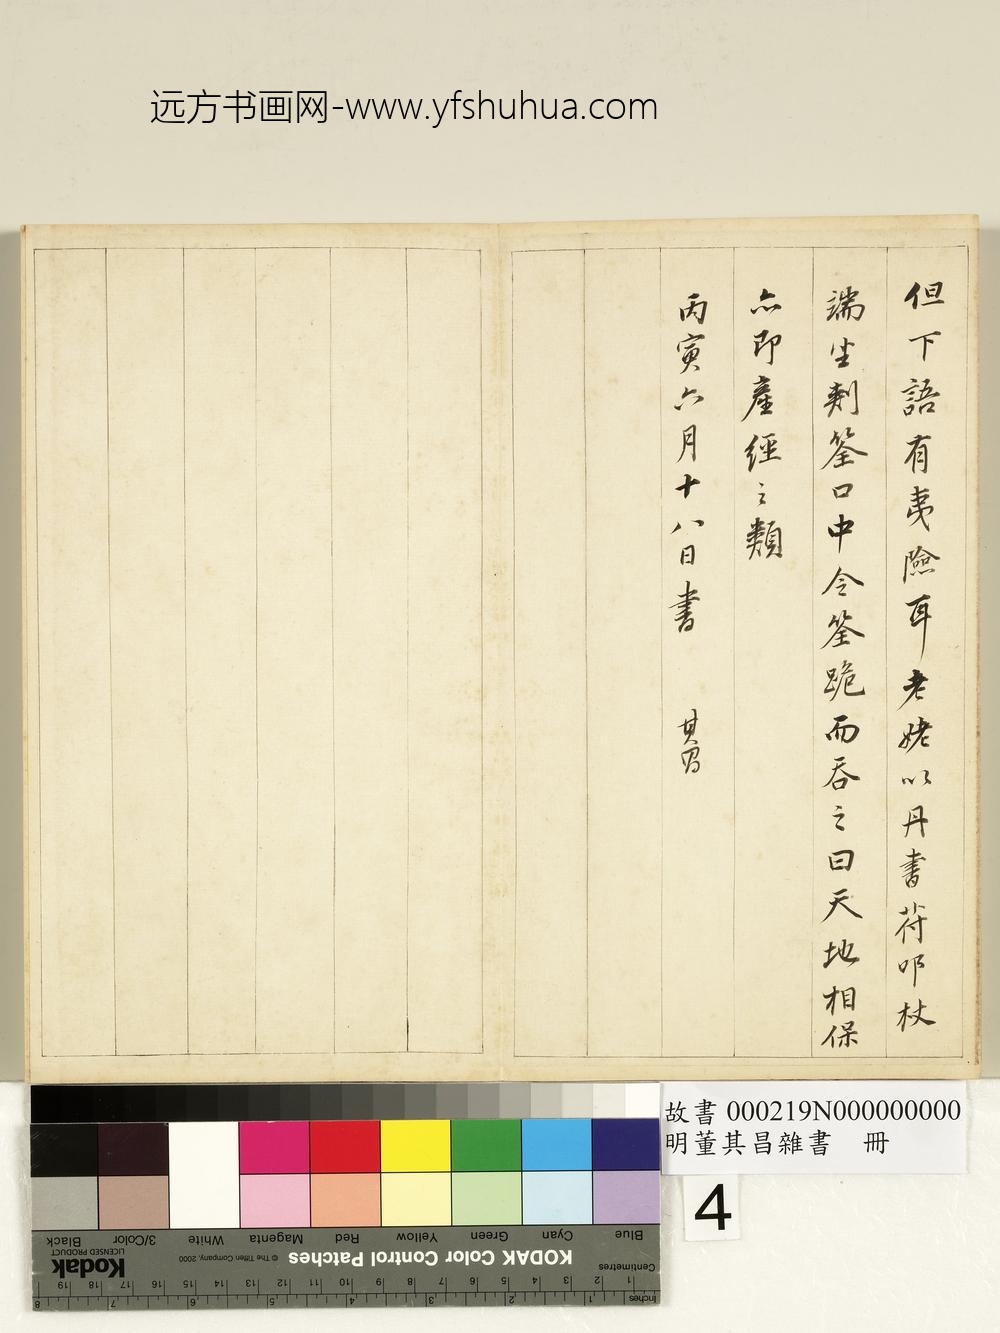 远方书画网-www.yfshuhua.com
但下語有夷險耳老姥以丹書符叩杖
端坐剌筌口中令筌跪而吞之曰天地相保
亦即產經之類
丙寅六月十八日書 其昌
故書 000219N000000000
明董其昌雜書 冊
4
Blue Cyan Green Yellow Red Magenta White 3/Color Black
KODAK Color Control Patches
© The Tiffen Company, 2000
Kodak
LICENSED PRODUCT
Centimetres
1 2 3 4 5 6 7 8 9 10 11 12 13 14 15 16 17 18 19
Inches
1 2 3 4 5 6 7 8